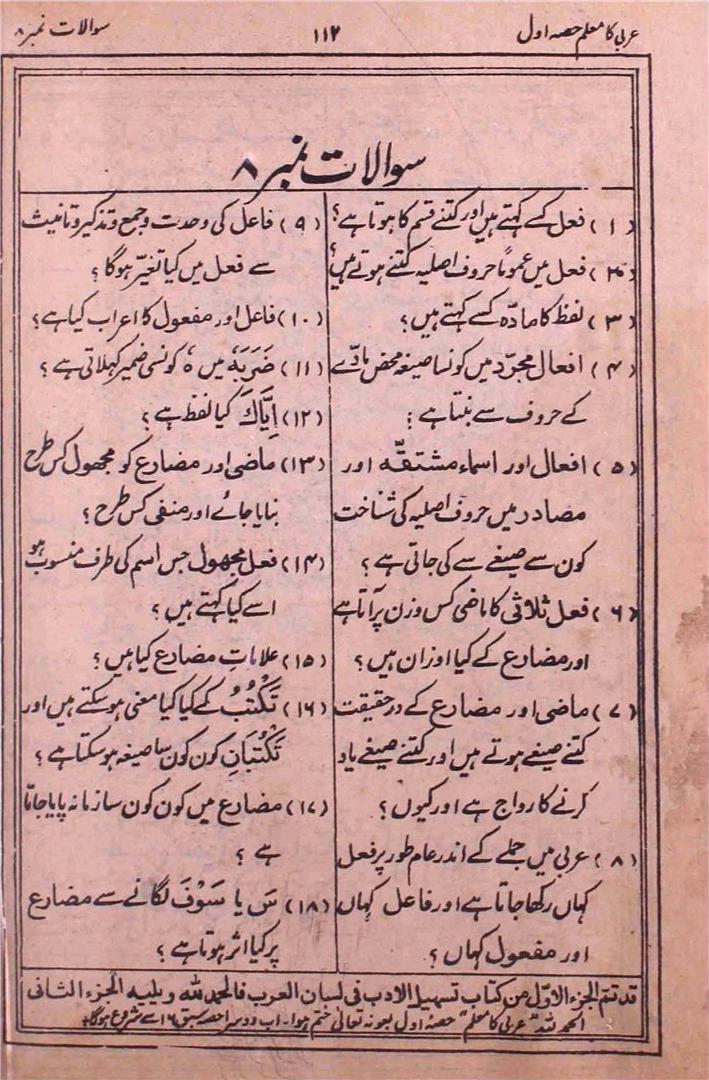 عربی کا معلم حصہ اول
۱۱۲
سوالات نمبر ۸
سوالات نمبر ۸
(۱) فعل کسے کہتے ہیں اور کتنے قسم کا ہوتا ہے؟
(۲) فعل میں عموماً حروف اصلیہ کتنے ہوتے ہیں؟
(۳) لفظ کا مادّہ کسے کہتے ہیں؟
(۴) افعال مجرّد میں کونسا صیغہ محض مادّے
کے حروف سے بنتا ہے؟
(۵) افعال اور اسماء مشتقّہ اور
مصادر میں حروف اصلیہ کی شناخت
کون سے صیغے سے کی جاتی ہے؟
(۶) فعل ثلاثی کا ماضی کس وزن پر آتا ہے
اور مضارع کے کیا اوزان ہیں؟
(۷) ماضی اور مضارع کے درحقیقت
کتنے صیغے ہوتے ہیں اور کتنے صیغے یاد
کرنے کا رواج ہے اور کیوں؟
(۸) عربی میں جملے کے اندر عام طور پر فعل
کہاں رکھا جاتا ہے اور فاعل کہاں
اور مفعول کہاں؟
(۹) فاعل کی وحدت و جمع و تذکیر و تانیث
سے فعل میں کیا تغیّر ہوگا؟
(۱۰) فاعل اور مفعول کا اعراب کیا ہے؟
(۱۱) ضَرَبَهٗ میں هٗ کونسی ضمیر کہلاتی ہے؟
(۱۲) اِیَّاكَ کیا لفظ ہے؟
(۱۳) ماضی اور مضارع کو مجهول کس طرح
بنایا جائے اور منفی کس طرح؟
(۱۴) فعل مجهول جس اسم کی طرف منسوب ہو
اسے کیا کہتے ہیں؟
(۱۵) علاماتِ مضارع کیا ہیں؟
(۱۶) تَكْتُبُ کے کیا کیا معنی ہو سکتے ہیں اور
تَكْتُبَانِ کون کون سا صیغہ ہو سکتا ہے؟
(۱۷) مضارع میں کون کون سا زمانہ پایا جاتا
ہے؟
(۱۸) سَ یا سَوْفَ لگانے سے مضارع
پر کیا اثر ہوتا ہے؟
قد تم الجزء الاوّل من كتاب تسهيل الادب فى لسان العرب فالحمد لله ويليه الجزء الثانى
الحمد للہ "عربی کا معلم" حصہ اول بعونہ تعالیٰ ختم ہوا۔ اب دوسرا حصہ سبق ۱۶ سے شروع ہوگا